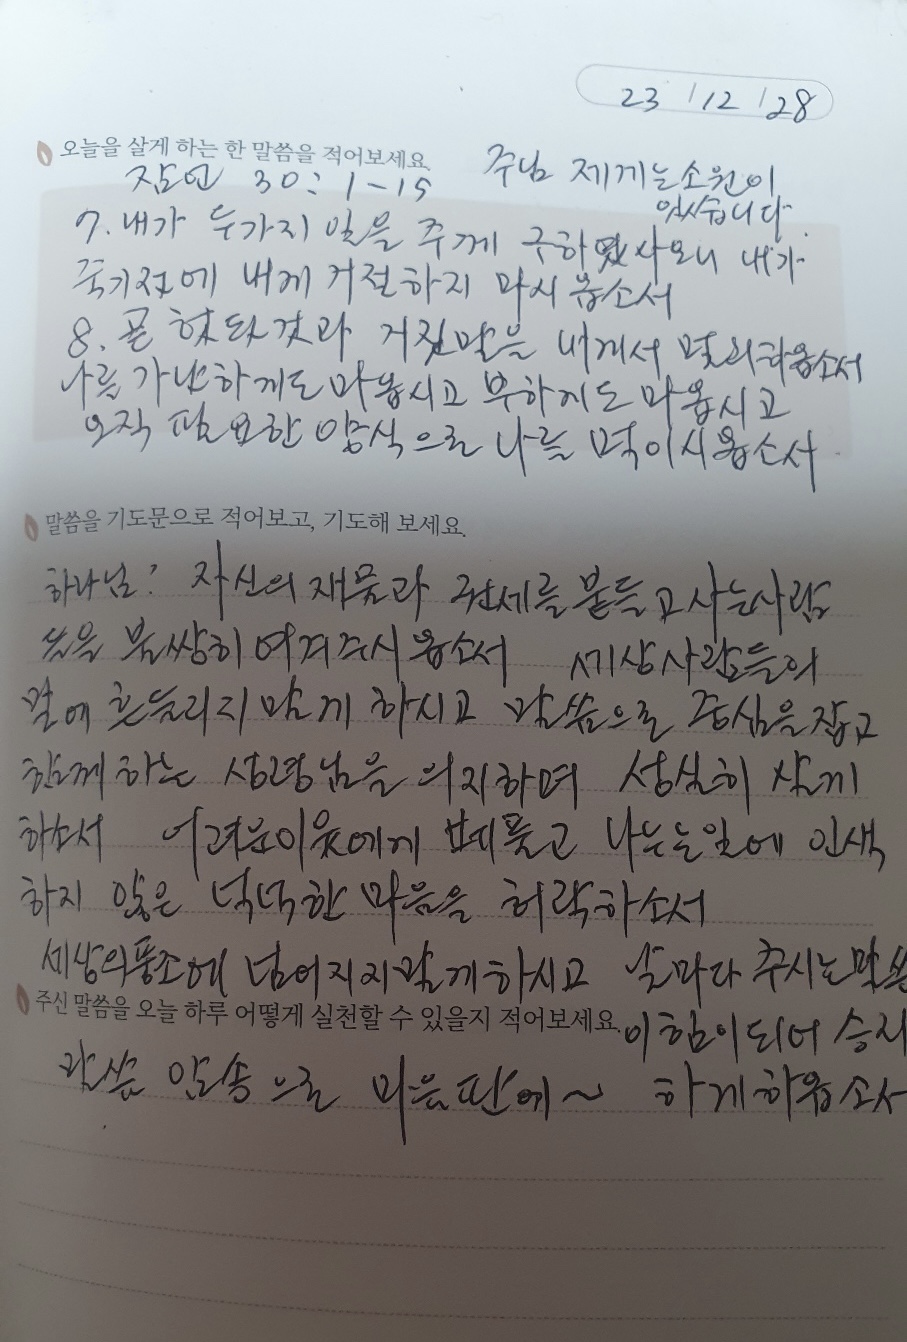 23 / 12 / 28
오늘을 살게 하는 한 말씀을 적어보세요.
잠언 30 : 1-15 주님 제게는소원이
있습니다.
7. 내가 두가지 일을 주께 구하였사오니 내가
죽기전에 내게 거절하지 마시옵소서
8. 곧 헛된것과 거짓말을 내게서 멀리하옵소서
나를 가난하게도 마옵시고 부하게도 마옵시고
오직 필요한 양식으로 나를 먹이시옵소서
말씀을 기도문으로 적어보고, 기도해 보세요.
하나님! 자신의 재물과 권세를 붙들고 사는사람
들을 불쌍히 여겨주시옵소서 세상사람들의
말에 흔들리지 않게 하시고 말씀으로 중심을 잡고
함께 하는 성령님을 의지하며 성실히 살게
하소서 어려운이웃에게 베풀고 나누는일에 인색
하지 않은 넉넉한 마음을 허락하소서
세상의풍조에 넘어지지않게하시고 날마다 주시는말씀
주신 말씀을 오늘 하루 어떻게 실천할 수 있을지 적어보세요.
이힘이되어 승리
말씀 암송으로 마음판에~ 하게하옵소서